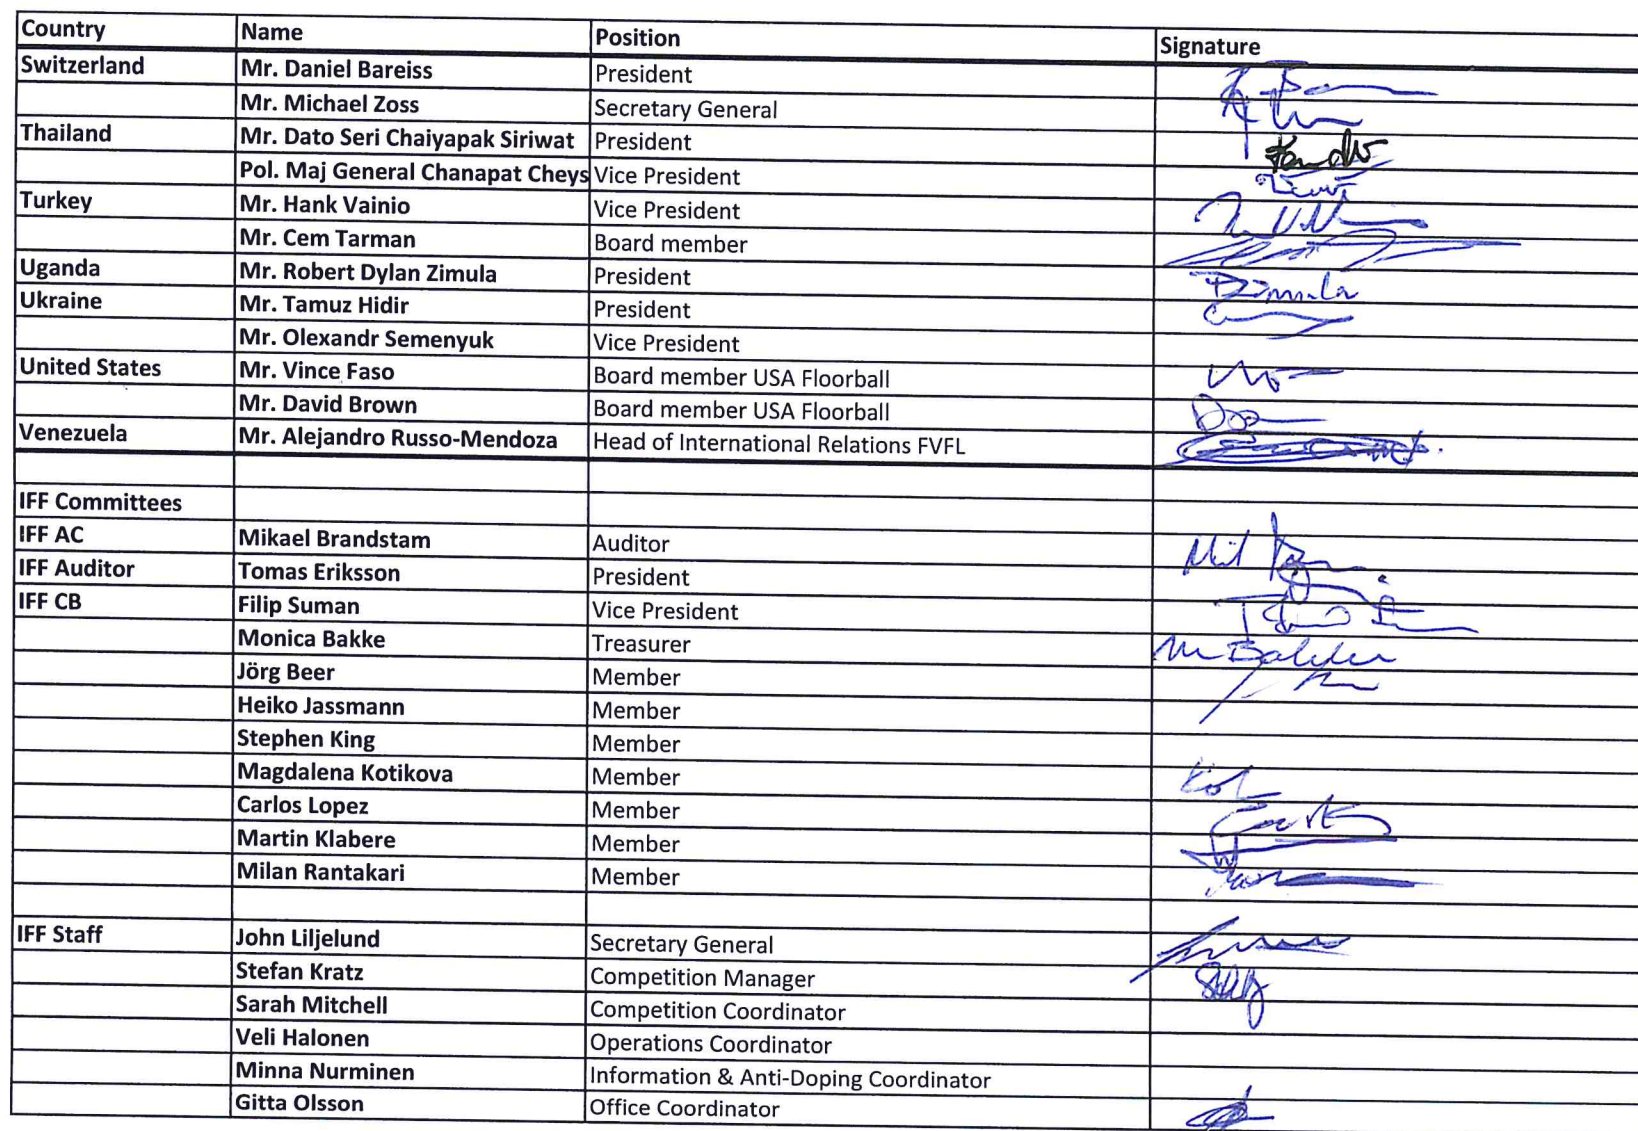 Country Name Position Signature
Switzerland Mr. Daniel Bareiss President
Mr. Michael Zoss Secretary General
Thailand Mr. Dato Seri Chaiyapak Siriwat President
Pol. Maj General Chanapat Cheys Vice President
Turkey Mr. Hank Vainio Vice President
Mr. Cem Tarman Board member
Uganda Mr. Robert Dylan Zimula President
Ukraine Mr. Tamuz Hidir President
Mr. Olexandr Semenyuk Vice President
United States Mr. Vince Faso Board member USA Floorball
Mr. David Brown Board member USA Floorball
Venezuela Mr. Alejandro Russo-Mendoza Head of International Relations FVFL
IFF Committees
IFF AC Mikael Brandstam Auditor
IFF Auditor Tomas Eriksson President
IFF CB Filip Suman Vice President
Monica Bakke Treasurer
Jörg Beer Member
Heiko Jassmann Member
Stephen King Member
Magdalena Kotikova Member
Carlos Lopez Member
Martin Klabere Member
Milan Rantakari Member
IFF Staff John Liljelund Secretary General
Stefan Kratz Competition Manager
Sarah Mitchell Competition Coordinator
Veli Halonen Operations Coordinator
Minna Nurminen Information & Anti-Doping Coordinator
Gitta Olsson Office Coordinator